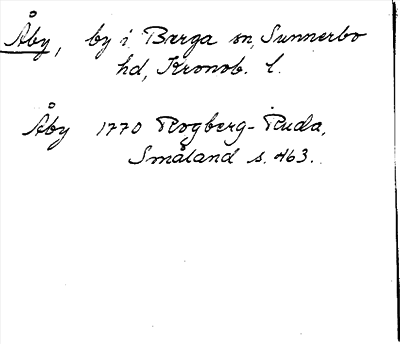 Åby, by i Barga sn, Sunnerbo
hd, Kronob. l.
Åby 1770 Rogberg-Ruda,
Småland s. 463.